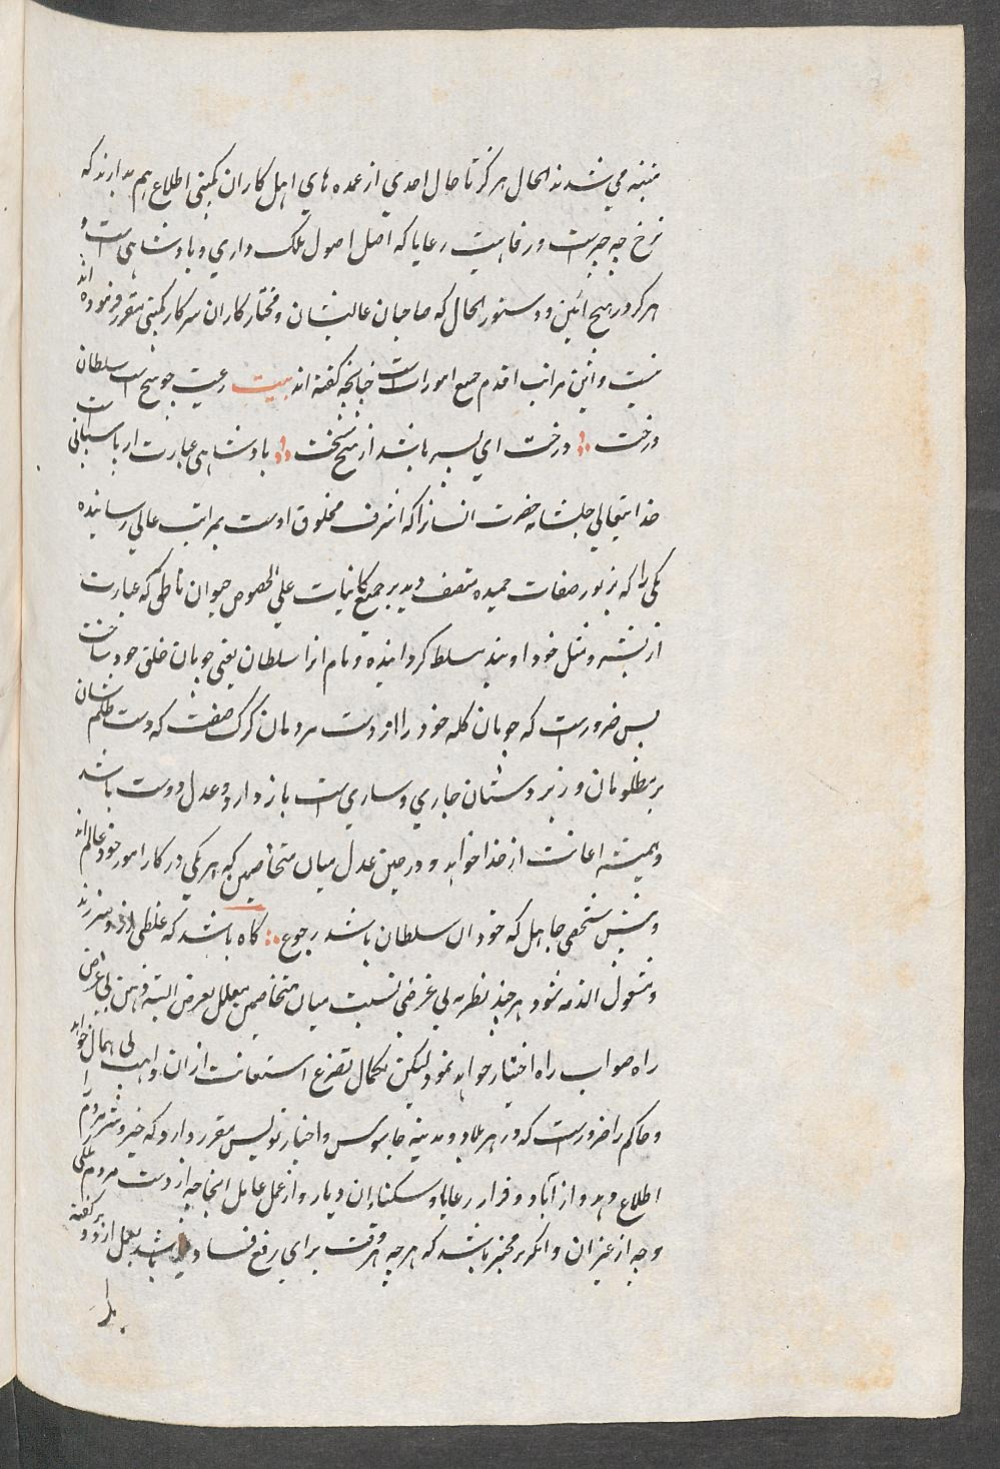 متنبه می شدند الحال هرگز تا حال احدی از عمده های اهل کاران کمپنی اطلاع هم ندارند که
نرخ چه چیز است و رفاهیت رعایا که اصل اصول ملک داری و پادشاهی است و
هرگز در هیچ آئین و دستور الحال که صاحبان عالیشان و مختار کاران سرکار کمپنی مقرر فرموده اند
نیست و این مراتب اقدم جمیع امورات است چنانچه گفته اند بیت رعیت چو بیخ است سلطان
درخت درخت ای پسر باشد از بیخ سخت پادشاهی عبارت از پاسبانی است
خدایتعالی جلشانه حضرت انسانرا که اشرف مخلوق اوست بمراتب عالی رسانیده
یکی را که بزیور صفات حمیده متصف دید بر جمیع کاینات علی الخصوص حیوان ناطق که عبارت
از بشر و مثل خود اویند مسلط گردانیده و نام انرا سلطان یعنی چوپان خلق خود ساخت
پس ضرورست که چوپان گله خود را از دست مردمان گرگ صفت که دست ظلم شان
بر مظلومان و زیردستان جاری و ساری است باز دارد و عدل دوست باشد
و همیشه اعانت از خدا خواهد و در حین عدل میان متخاصمین که هر یکی در کار امور خود عالم اند
و پیش شخصی جاهل که خود ان سلطان باشد رجوع گاه باشد که غلطی ازو سر زند
و مشغول الذمه شود هر چند نظر به بی غرضی نسبت میان متخاصمین معلل بغرض البته ذهن بی غرض
راه صواب راه اختیار خواهد نمود لیکن بکمال تضرع استعانت ازان واهب بی همال خواهد
و حاکم را ضرورست که در هر بلاد و مدینه جاسوس و اخبار نویس مقرر دارد که خیر و شر مردم را
اطلاع دهد و از آباد و فرار رعایا و سکنایان دیار و از عمل عامل انجا چه از دست مردم ملکی
و چه از غیران و انگریز مخبر باشد که هر چه هر وقت برای رفع فساد باشد بعمل ارد و بر گفته